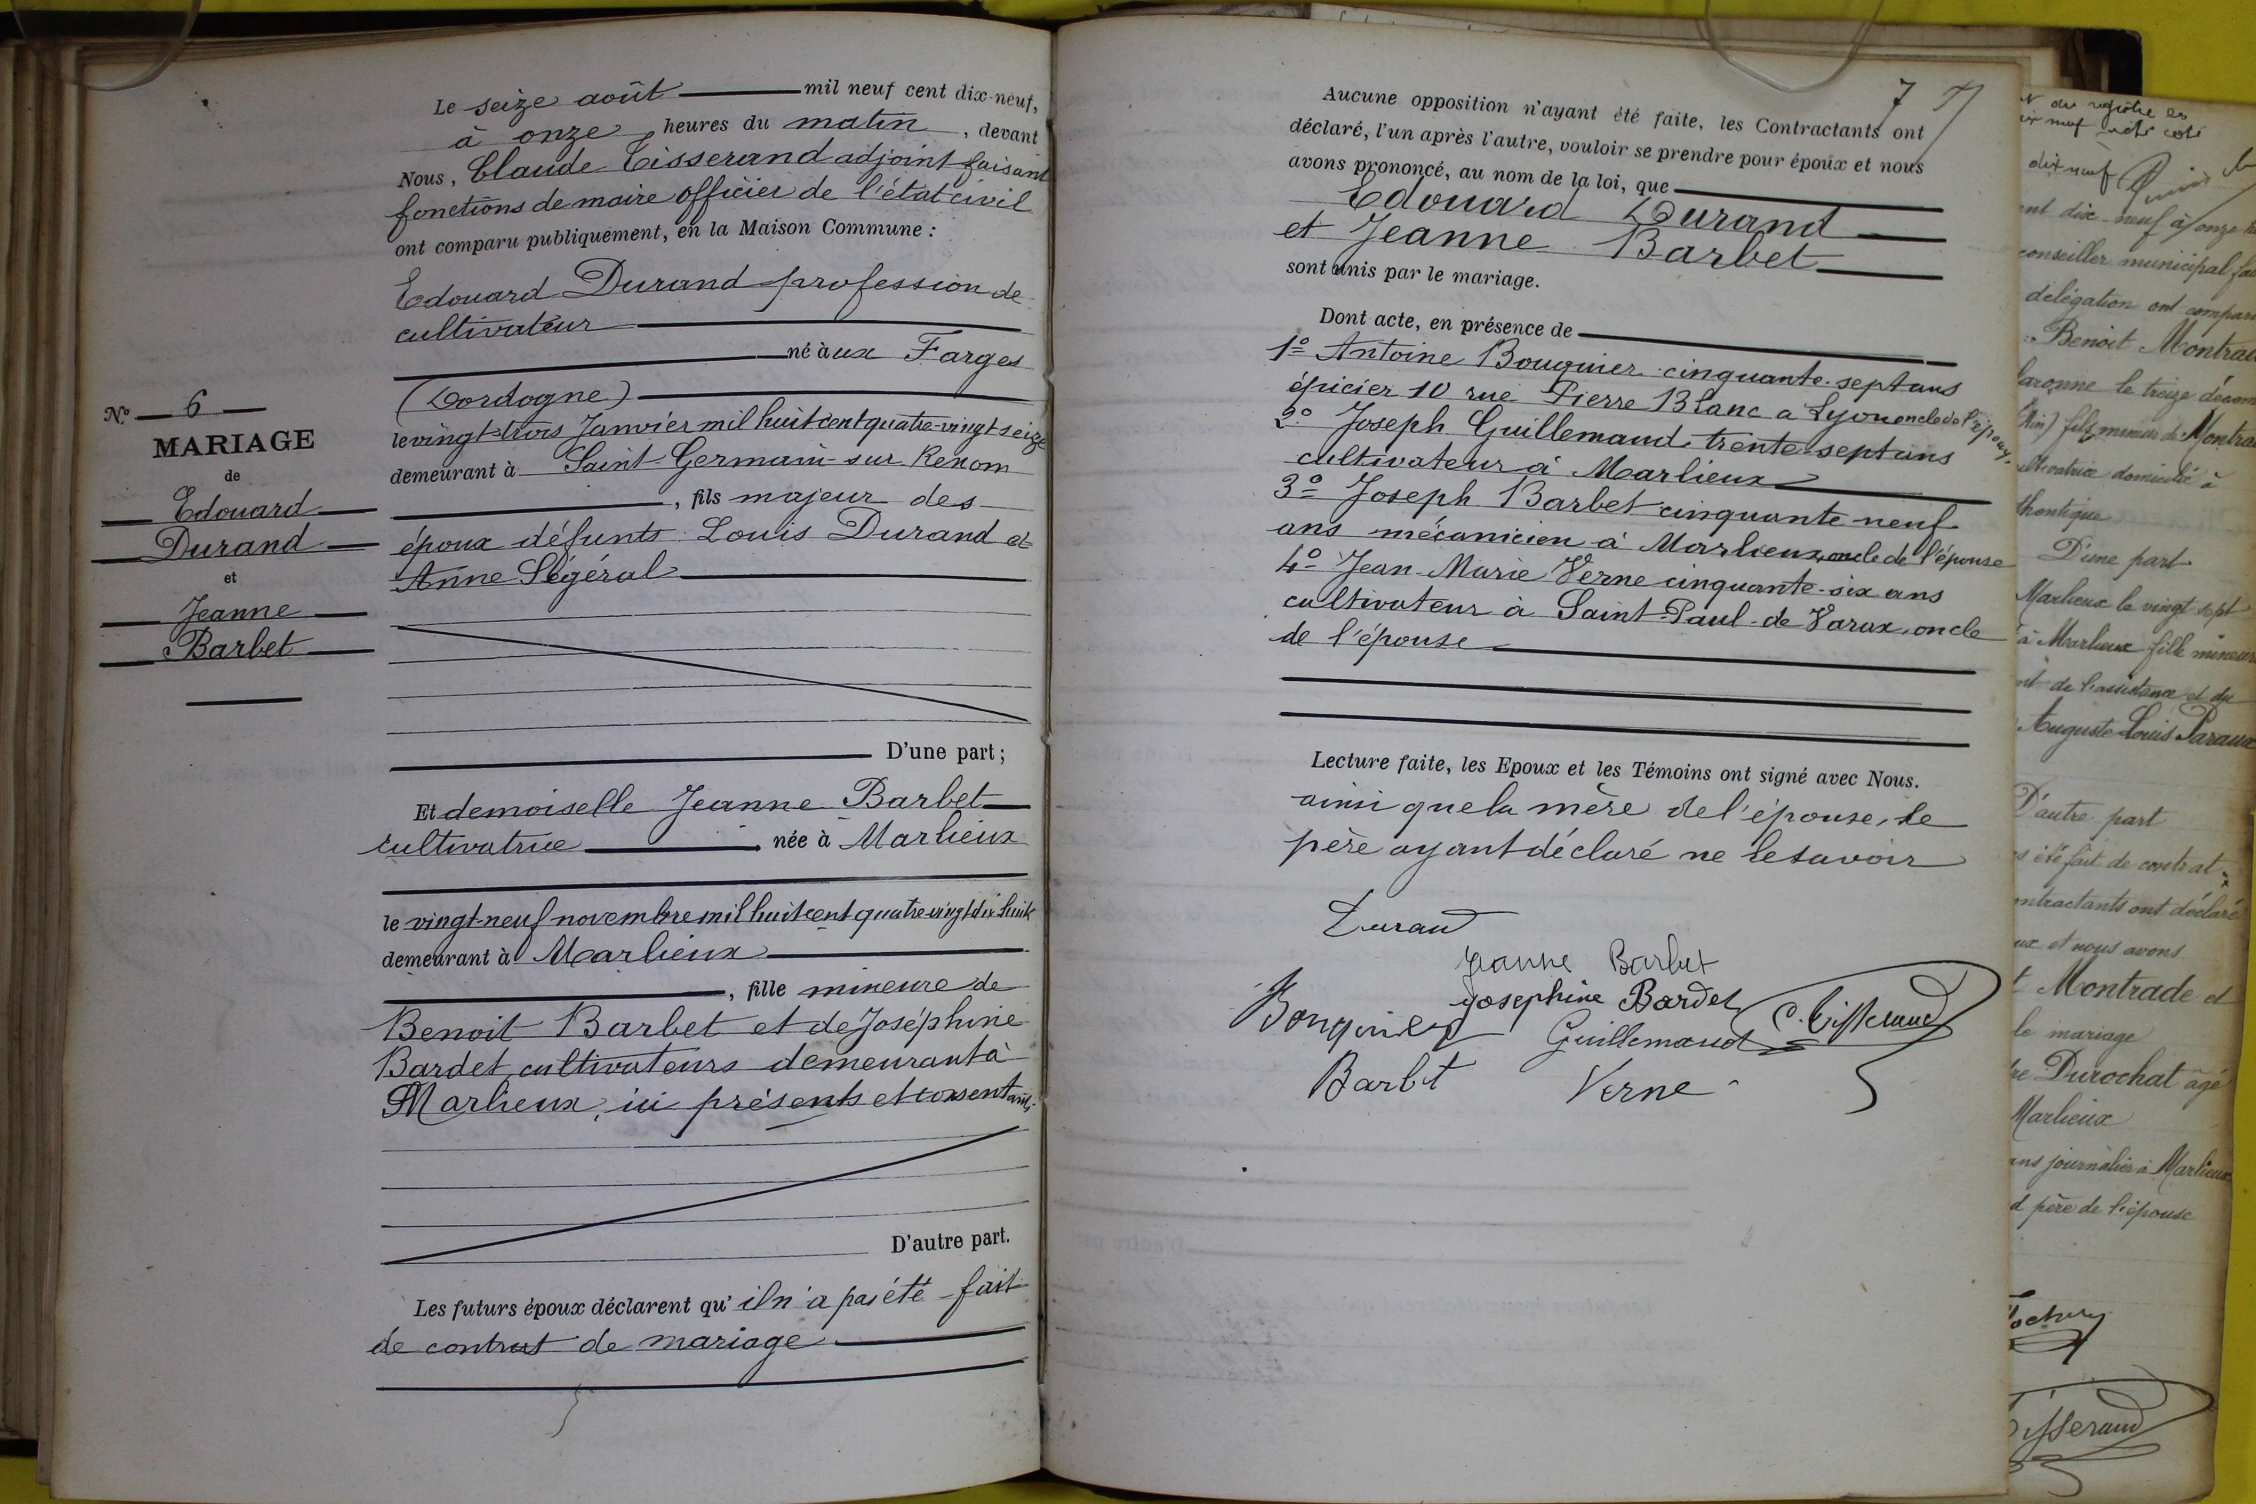 Le seize août mil neuf cent dix-neuf,
à onze heures du matin, devant
Nous, Claude Tisserand adjoint faisant
fonctions de maire officier de l'état civil
ont comparu publiquement, en la Maison Commune :
Edouard Durand profession de
cultivateur
né à ux Farges
(Dordogne)
le vingt-trois Janvier mil huit cent quatre-vingt seize
demeurant à Saint-Germain-sur-Renom
, fils majeur des
époux défunts Louis Durand et
Anne Ségéral
D'une part ;
Et demoiselle Jeanne Barbet
cultivatrice née à Marlieux
le vingt-neuf novembre mil huit cent quatre vingt dix huit
demeurant à Marlieux
, fille mineure de
Benoit Barbet et de Joséphine
Bardet cultivateurs demeurant à
Marlieux, ici présents et consentants
D'autre part.
Les futurs époux déclarent qu' il n'a pas été fait
de contrat de mariage
N° 6
MARIAGE
de
Edouard
Durand
et
Jeanne
Barbet
7
Aucune opposition n'ayant été faite, les Contractants ont
déclaré, l'un après l'autre, vouloir se prendre pour époux et nous
avons prononcé, au nom de la loi, que
Edouard Durand
et Jeanne Barbet
sont unis par le mariage.
Dont acte, en présence de
1° Antoine Bouquier cinquante-sept ans
épicier 10 rue Pierre Blanc a Lyon oncle de l'époux.
2° Joseph Guillemaud trente-sept ans
cultivateur à Marlieux
3° Joseph Barbet cinquante neuf
ans mécanicien à Marlieux, oncle de l'épouse
4° Jean-Marie Verne cinquante-six ans
cultivateur à Saint-Paul-de Varax, oncle
de l'épouse
Lecture faite, les Epoux et les Témoins ont signé avec Nous.
ainsi que la mère de l'épouse, le
père ayant déclaré ne le savoir
Durand
Jeanne Barbet
Josephine Bardet
Bouquier Guillemaud C. Tisserand
Barbet Verne
du registre es
dix neuf
ent dix-neuf à onze
conseiller municipal fai
délégation ont comparu
Benoit Montrade
laronne le treize décem
(Ain) fils mineur de Montra
ltivatrice domicilié à
thentique
D'une part
Marlieux le vingt sept
à Marlieux fille mineure
de l'assistance et du
Auguste Louis Paraux
D'autre part
s été fait de contrat
ntractants ont déclaré
ux et nous avons
t Montrade et
le mariage
re Durochat âgé
Marlieux
ans journalier à Marlieux
d père de l'épouse
Tisserand